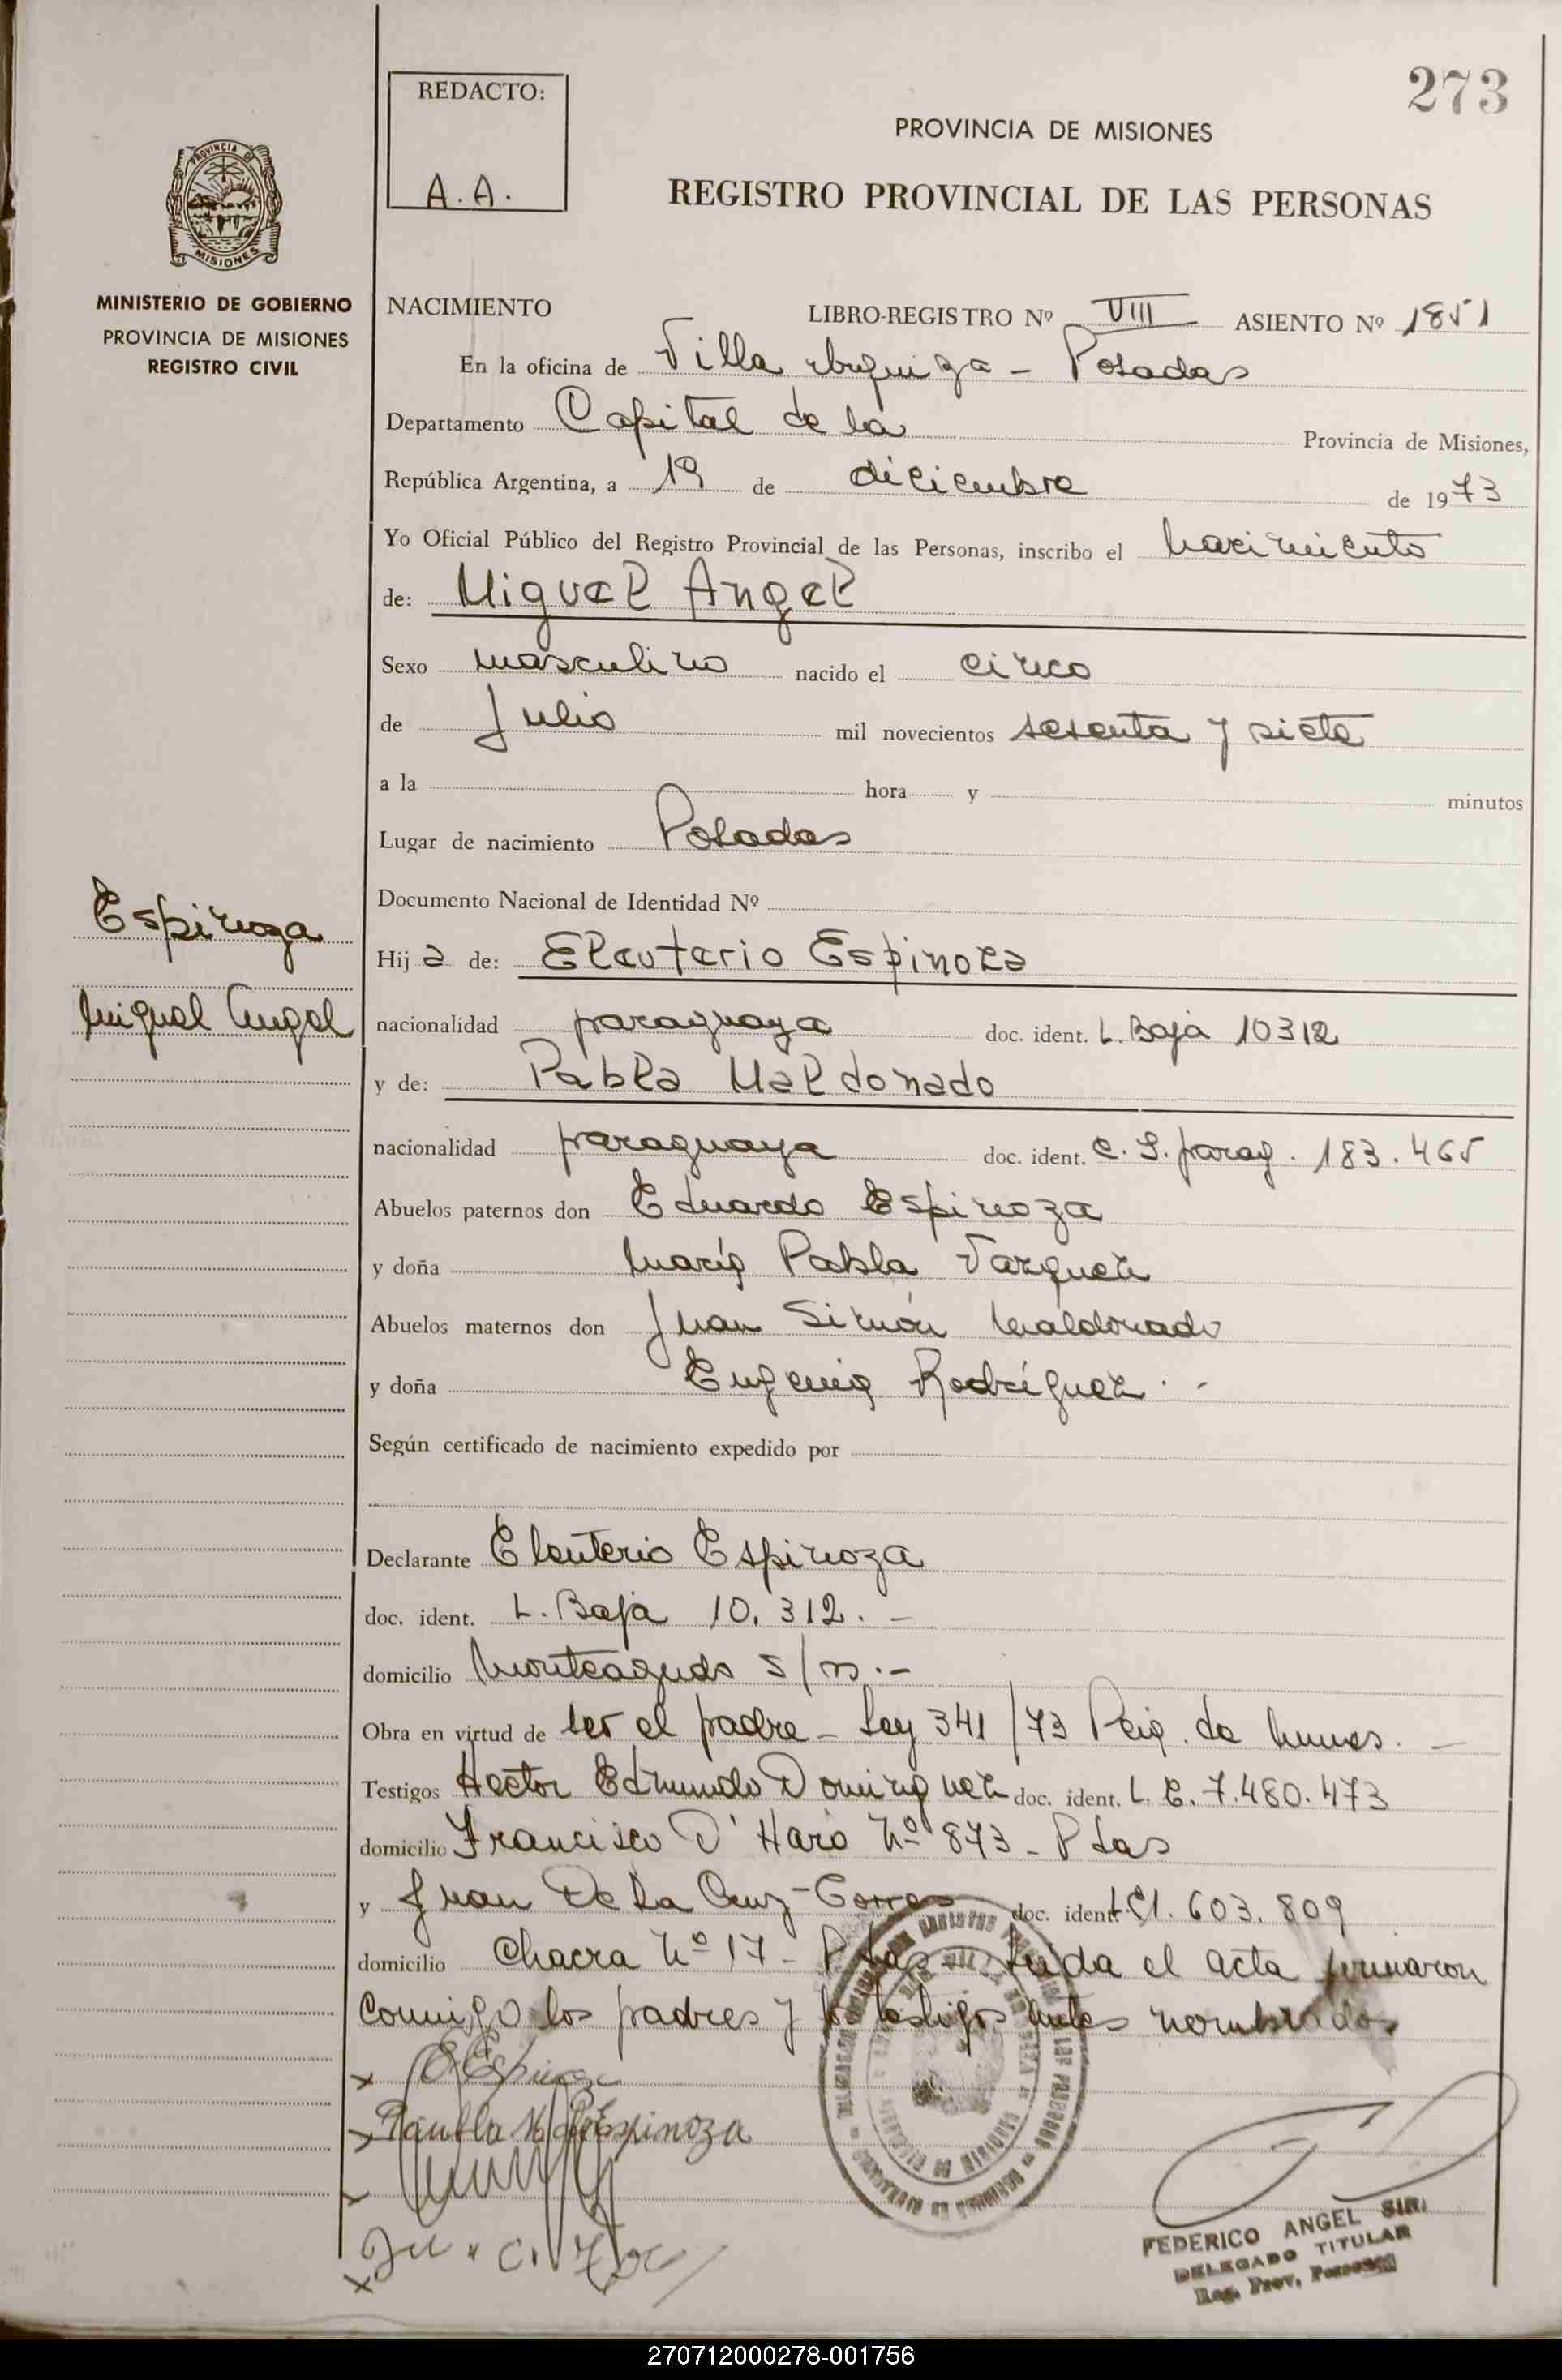 273
REDACTO:
A.A.
PROVINCIA DE MISIONES
REGISTRO PROVINCIAL DE LAS PERSONAS
PROVINCIA DE
MISIONES
MINISTERIO DE GOBIERNO
PROVINCIA DE MISIONES
REGISTRO CIVIL
NACIMIENTO LIBRO-REGISTRO Nº VIII ASIENTO Nº 1851
En la oficina de Villa Urquiza - Posadas
Departamento Capital de la Provincia de Misiones,
República Argentina, a 19 de diciembre de 1973
Yo Oficial Público del Registro Provincial de las Personas, inscribo el nacimiento
de: Miguel Angel
Sexo masculino nacido el cinco
de Julio mil novecientos sesenta y siete
a la hora y minutos
Lugar de nacimiento Posadas
Documento Nacional de Identidad Nº
Espinoza
Miguel Angel
Hij a de: Eleuterio Espinoza
nacionalidad paraguaya doc. ident. L. Baja 10312
y de: Pabla Maldonado
nacionalidad paraguaya doc. ident. C. I. parag. 183.465
Abuelos paternos don Eduardo Espinoza
y doña María Pabla Vazquez
Abuelos maternos don Juan Simón Maldonado
y doña Eugenia Rodríguez . -
Según certificado de nacimiento expedido por
Declarante Eleuterio Espinoza
doc. ident. L. Baja 10.312. -
domicilio Monteagudo s/n .-
Obra en virtud de ser el padre - Ley 341/73 -
Testigos Hector Edmundo Dominguez doc. ident. L. E. 7.480.473
domicilio Francisco D' Haro Nº 873 - Pdas
y Juan De La Cruz doc. ident. 1.603.809
domicilio Chacra Nº 17 - Pdas - Leida el acta firmaron
conmigo los padres y los testigos antes nombrados
x E Espinoza
x Espinoza
x
x
FEDERICO ANGEL SIRI
DELEGADO TITULAR
Reg. Prov. Personas
270712000278-001756